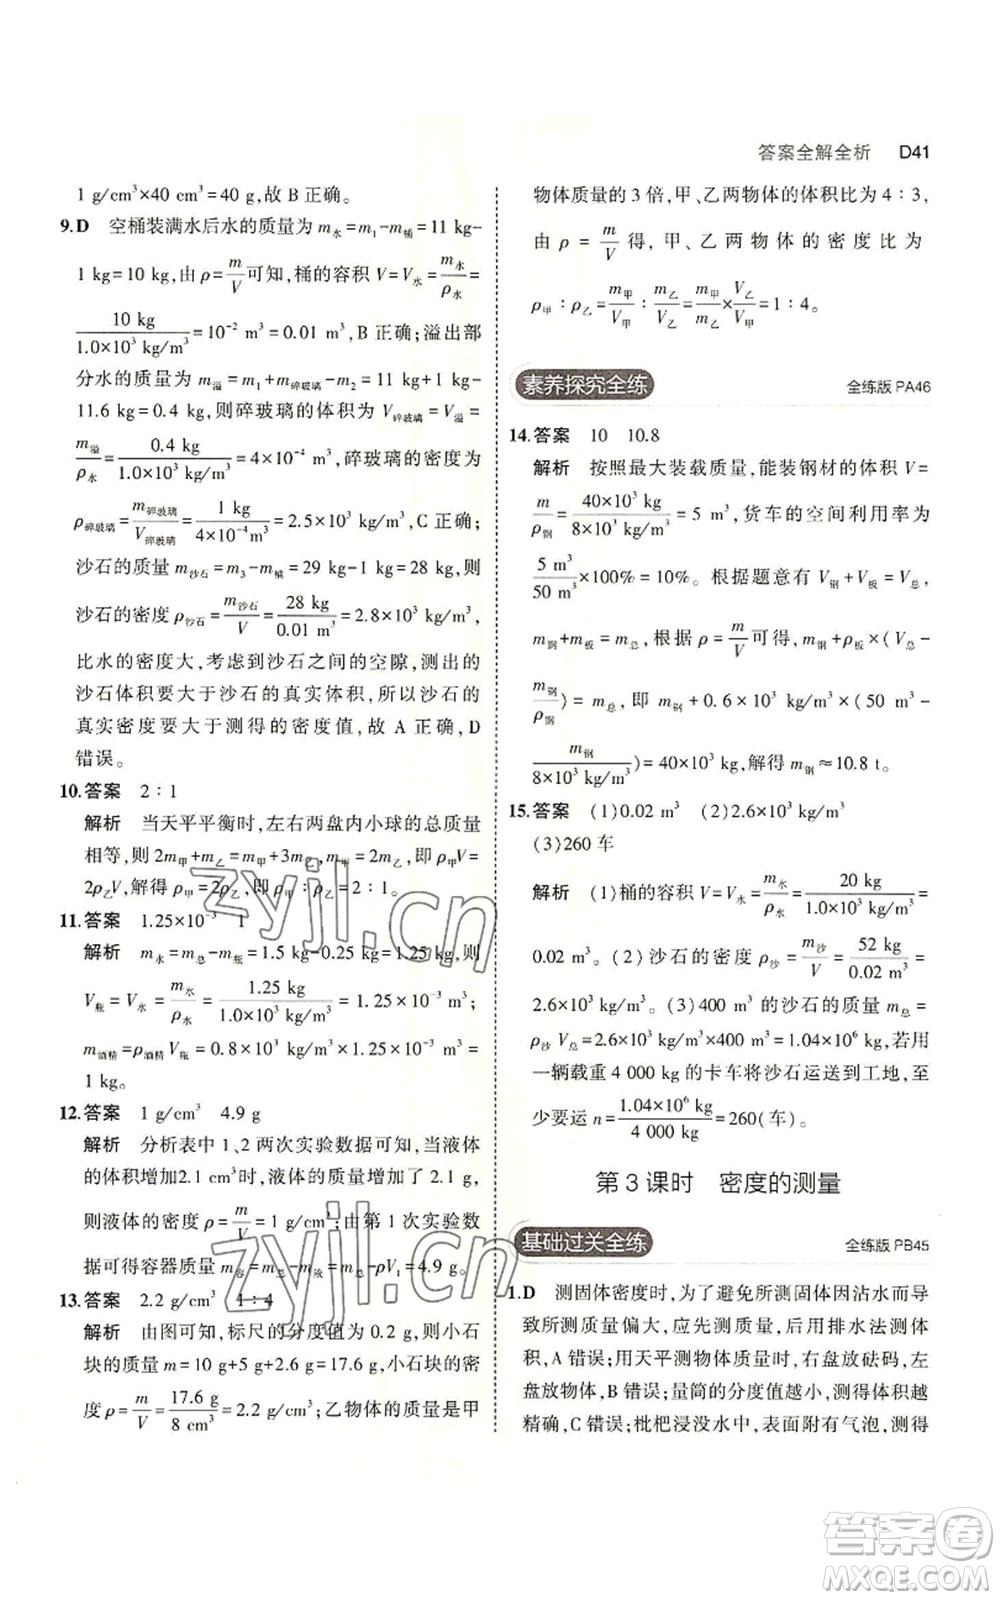 答案全解全析 D41
1 g/cm³×40 cm³=40 g,故 B 正确。
9.D 空桶装满水后水的质量为 m水=m₁-m桶=11 kg-
1 kg=10 kg,由 ρ=m/V 可知,桶的容积 V=V水=m水/ρ水=
10 kg/(1.0×10³ kg/m³)=10⁻² m³=0.01 m³,B 正确;溢出部
分水的质量为 m溢=m₁+m碎玻璃-m₂=11 kg+1 kg-
11.6 kg=0.4 kg,则碎玻璃的体积为 V碎玻璃=V溢=
m溢/ρ水=0.4 kg/(1.0×10³ kg/m³)=4×10⁻⁴ m³,碎玻璃的密度为
ρ碎玻璃=m碎玻璃/V碎玻璃=1 kg/(4×10⁻⁴ m³)=2.5×10³ kg/m³,C 正确;
沙石的质量 m沙石=m₃-m桶=29 kg-1 kg=28 kg,则
沙石的密度 ρ沙石=m沙石/V=28 kg/0.01 m³=2.8×10³ kg/m³,
比水的密度大,考虑到沙石之间的空隙,测出的
沙石体积要大于沙石的真实体积,所以沙石的
真实密度要大于测得的密度值,故 A 正确,D
错误。
10.答案 2∶1
解析 当天平平衡时,左右两盘内小球的总质量
相等,则 2m甲+m乙=m甲+3m乙,m甲=2m乙,即 ρ甲V=
2ρ乙V,解得 ρ甲=2ρ乙,即 ρ甲∶ρ乙=2∶1。
11.答案 1.25×10⁻³ 1
解析 m水=m总-m瓶=1.5 kg-0.25 kg=1.25 kg,则
V瓶=V水=m水/ρ水=1.25 kg/(1.0×10³ kg/m³)=1.25×10⁻³ m³;
m酒精=ρ酒精V瓶=0.8×10³ kg/m³×1.25×10⁻³ m³=
1 kg。
12.答案 1 g/cm³ 4.9 g
解析 分析表中 1、2 两次实验数据可知,当液体
的体积增加2.1 cm³时,液体的质量增加了 2.1 g,
则液体的密度 ρ=m/V=1 g/cm³;由第 1 次实验数
据可得容器质量 m容=m总-m液=m总-ρV₁=4.9 g。
13.答案 2.2 g/cm³ 1∶4
解析 由图可知,标尺的分度值为 0.2 g,则小石
块的质量 m=10 g+5 g+2.6 g=17.6 g,小石块的密
度 ρ=m/V=17.6 g/8 cm³=2.2 g/cm³;乙物体的质量是甲
物体质量的 3 倍,甲、乙两物体的体积比为 4∶3,
由 ρ=m/V 得,甲、乙两物体的密度比为
ρ甲∶ρ乙=m甲/V甲∶m乙/V乙=m甲/m乙×V乙/V甲=1∶4。
素养探究全练 全练版 PA46
14.答案 10 10.8
解析 按照最大装载质量,能装钢材的体积 V=
m/ρ钢=40×10³ kg/(8×10³ kg/m³)=5 m³,货车的空间利用率为
5 m³/50 m³×100%=10%。根据题意有 V钢+V板=V总,
m钢+m板=m总,根据 ρ=m/V可得,m钢+ρ板×(V总-
m钢/ρ钢)=m总,即 m钢+0.6×10³ kg/m³×(50 m³-
m钢/(8×10³ kg/m³))=40×10³ kg,解得 m钢≈10.8 t。
15.答案 (1)0.02 m³ (2)2.6×10³ kg/m³
(3)260 车
解析 (1)桶的容积 V=V水=m水/ρ水=20 kg/(1.0×10³ kg/m³)=
0.02 m³。(2)沙石的密度 ρ沙=m沙/V=52 kg/0.02 m³=
2.6×10³ kg/m³。(3)400 m³ 的沙石的质量 m总=
ρ沙V总=2.6×10³ kg/m³×400 m³=1.04×10⁶ kg,若用
一辆载重 4 000 kg 的卡车将沙石运送到工地,至
少要运 n=1.04×10⁶ kg/4 000 kg=260(车)。
第 3 课时 密度的测量
基础过关全练 全练版 PB45
1.D 测固体密度时,为了避免所测固体因沾水而导
致所测质量偏大,应先测质量,后用排水法测体
积,A 错误;用天平测物体质量时,右盘放砝码,左
盘放物体,B 错误;量筒的分度值越小,测得体积越
精确,C 错误;枇杷浸没水中,表面附有气泡,测得
zyjl.cn
zyjl.cn
答案卷
MXQE.COM